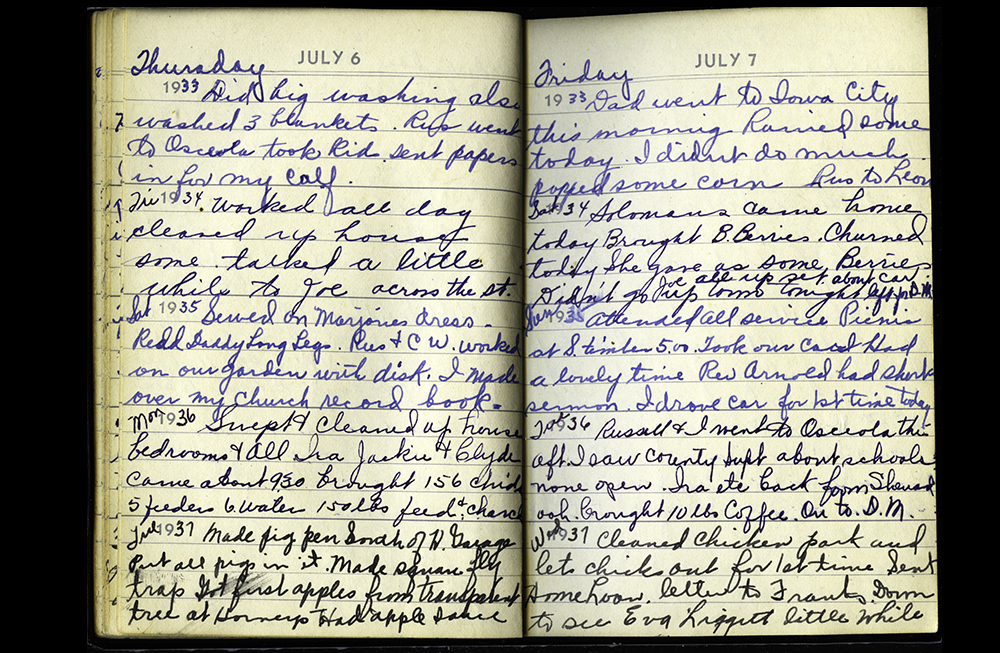 JULY 6
Thursday
1933 Did big washing also
washed 3 blankets. Rus went
to Osceola took Kid. sent papers
in for my calf.
Fri 1934. Worked all day
cleaned up house
some. talked a little
while to Joe across the st.
Sat 1935 Sewed on Marjories dress.
Redd Daddy Long Legs. Rus & C W. worked
on our garden with disk. I made
over my church record book.
Mon 1936 Swept & Cleaned up house
bedrooms & All Ira Jackie & Clyde
came about 930 brought 156 chicks
5 feeders 6 water 150 lbs feed &
1937 Made pig pen South of N. Garage
Put all pigs in it. Made square fly
trap Got first apples from transparent
tree at Horneys Had apple sauce
JULY 7
Friday
1933 Dad went to Iowa City
this morning Rained some
today. I didn't do much.
some corn Rus to Leon
Sat 1934 Solomans came home
today Brought B. Berries. Churned
today She gave us some Berries
Joe all up set about car.
Didn't go up town tonight
Sun 1935 Attended all service Picnic
at S. timber 5.00. Took our Had
a lovely time Rev Arnold had short
sermon. I drove car for 1st time today
1936 Russell & I went to Osceola this
aft. I saw County Supt about schools
none open. Ira etc back from Shenand
oah brought 10 lbs Coffee. On to D.M.
Wed 1937 Cleaned chicken park and
lets chicks out for 1st time Sent
letter to Franks. Down
to see Eva Liggett little while